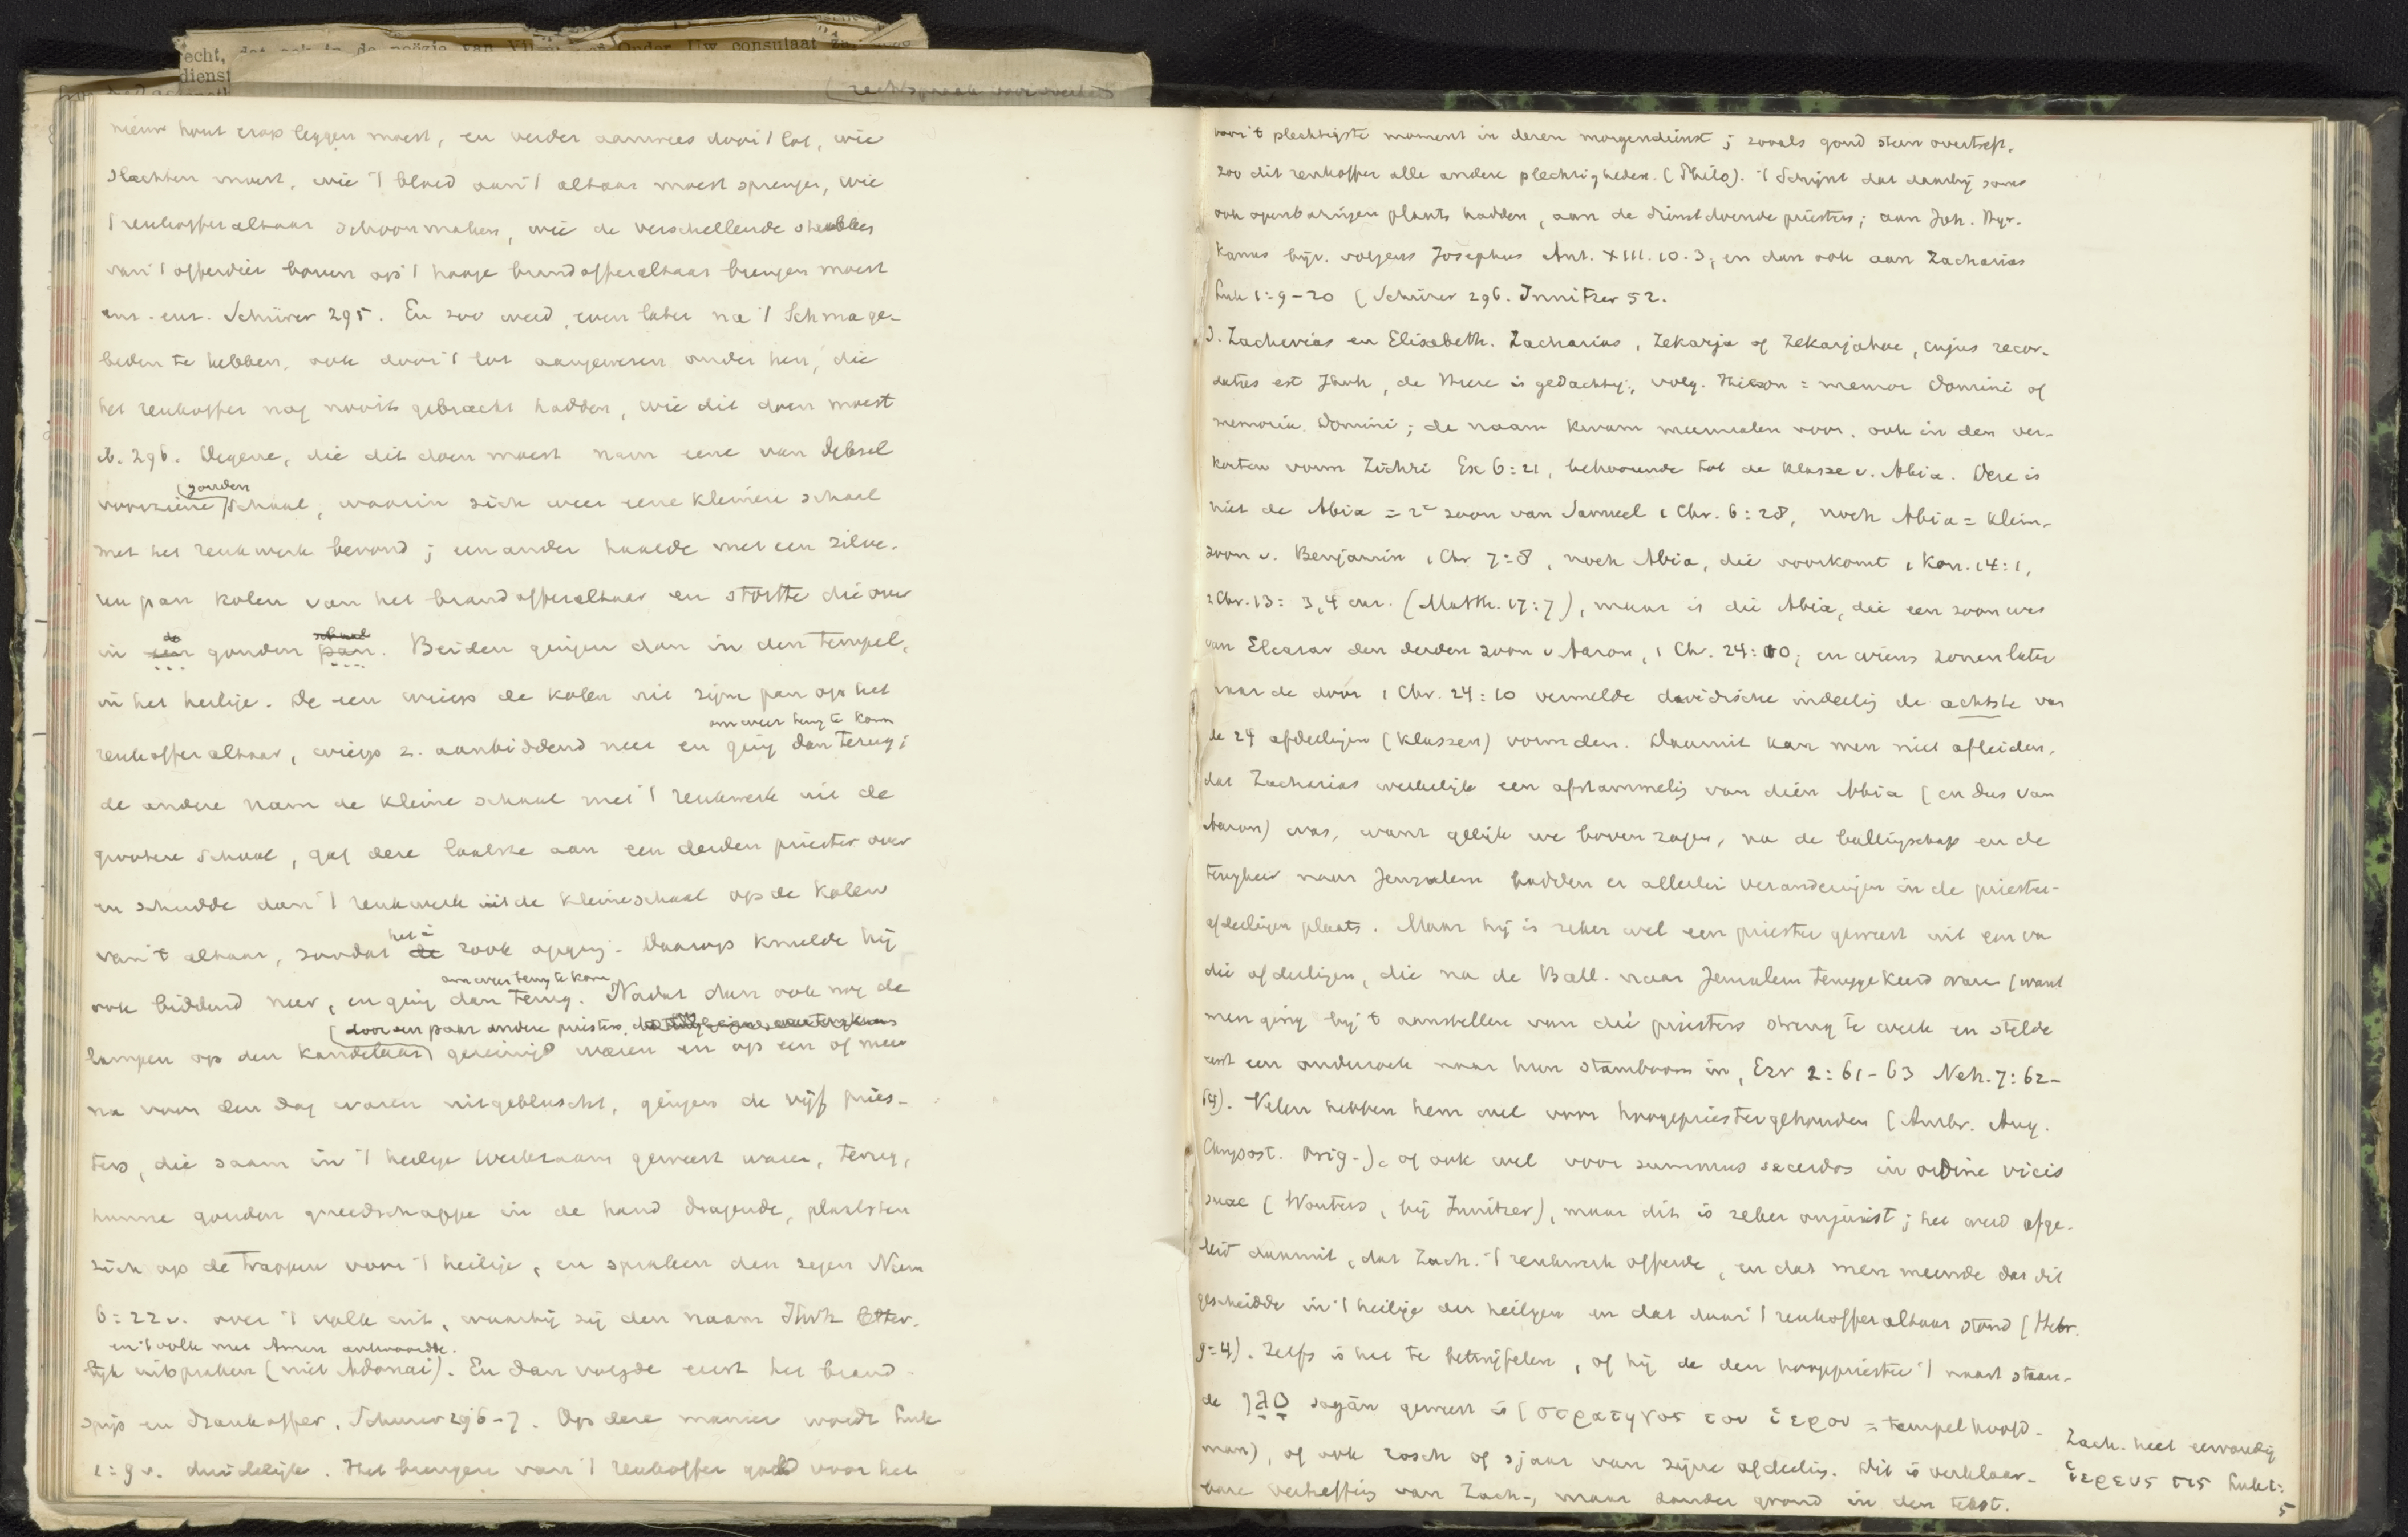 recht, dat ook in de poëzie van Onder Uw consulaat
dienst
rechtspraak
nieuw hout erop leggen moest, en verder aanwees door 't lot, wie
slachten moest, wie 't bloed aan 't altaar moest sprengen, wie
't reukofferaltaar schoonmaken, wie de verschellende stukken
van 't offerdier boven op 't hooge brandofferaltaar brengen moest
enz. enz. Schürer 295. En zoo werd, even later na 't Schma ge-
beden te hebben, ook door 't lot aangewezen onder hen, die
het reukoffer nog nooit gebracht hadden, wie dit doen moest
ib. 296. Degene, die dit doen moest nam eene van deksel
voorziene (gouden) schaal, waarin zich weer eene kleinere schaal
met het reukwerk bevond; een ander haalde met een zilve-
ren pan kolen van het brandofferaltaar en stortte die over
in een gouden pan. Beiden gingen dan in den tempel,
in het heilige. De een wierp de kolen uit zijne pan op het
om weer terug te kom
reukofferaltaar, wierp z. aanbiddend neer en ging dan terug;
de andere nam de kleine schaal met 't reukwerk uit de
grootere schaal, gaf deze laatste aan een derden priester over
en schudde dan 't reukwerk uit de kleine schaal op de kolen
van 't altaar, zoodat de rook opging. Daarop knielde hij
om weer terug te kom
ook biddend neer, en ging dan terug. Nadat dan ook nog de
(door een paar andere priesters
lampen op den kandelaar) gereinigd waren en op een of meer
na voor den dag waren uitgebluscht, gingen de vijf pries-
ters, die saam in 't heilige werkzaam geweest waren, terug,
hunne gouden gereedschappe in de hand dragende, plaatsten
zich op de trappen voor 't heilige, en spraken den zegen Num
6:22v. over 't volk uit, waarbij zij den naam Jhvh letter-
en 't volk met Amen antwoordde.
lijk uitspraken (niet Adonai). En dan volgde eerst het brand-
spijs en drankoffer, Schürer 296-7. Op deze manier wordt Luk
1:9v. duidelijk. Het brengen van 't reukoffer gold voor het
voor 't plechtigste moment in dezen morgendienst; zooals goud steen overtreft,
zoo dit reukoffer alle andere plechtigheden. (Philo). 't Schijnt dat daarbij soms
ook openbaringen plaats hadden, aan de dienstdoende priesters; aan Joh. Hyr-
kanus bijv. volgens Josephus Ant. XIII.10.3, en dan ook aan Zacharias
Luk 1:9-20 (Schürer 296. Innitzer 52.
3. Zacharias en Elisabeth. Zacharias, Zekarja of Zekarjahoe, cujus recor-
datus est Jhvh, de Heere is gedachtig, volg. = memor Domini of
memoria Domini; de naam kwam meermalen voor, ook in den ver-
korten vorm Zichri Ex 6:21, behoorende tot de klasse v. Abia. Deze is
niet de Abia = 2e zoon van Samuel 1 Chr. 6:28, noch Abia = klein-
zoon v. Benjamin 1 Chr 7:8, noch Abia, die voorkomt 1 Kon. 14:1,
2 Chr. 13:3,4 enz. (Matth. 1:7), maar is die Abia, die een zoon was
van Eleazar den derden zoon v. Aaron, 1 Chr. 24:10; en wiens zonen later
naar de door 1 Chr. 24:10 vermelde davidische indeeling de achtste van
de 24 afdeelingen (klassen) vormden. Daaruit kan men niet afleiden,
dat Zacharias werkelijk een afstammeling van dien Abia (en dus van
Aaron) was, want gelijk we boven zagen, na de ballingschap en de
terugkeer naar Jeruzalem hadden er allerlei veranderingen in de priester-
afdeelingen plaats. Maar hij is zeker wel een priester geweest uit een va
die afdeelingen, die na de Ball. naar Jeruzalem teruggekeerd waren (want
men ging bij 't aanstellen van die priesters streng te werk en stelde
eerst een onderzoek naar hun stamboom in, Ezr 2:61-63 Neh. 7:62-
64). Velen hebben hem wel voor hoogepriester gehouden (Ambr. Aug.
Chrysost. Orig-), of ook wel voor summus sacerdos in ordine vicis
suae (Wouters, bij Innitzer), maar dit is zeker onjuist; het werd afge-
leid daaruit, dat Zach. 't reukwerk offerde, en dat men meende dat dit
geschiedde in 't heilige der heiligen en dat daar 't reukofferaltaar stond (Hebr.
9:4). Zelfs is het te betwijfelen, of hij de den hoogepriester 't naast staan-
de סגן sagân geweest is (στρατηγος του ἱερου = tempelhoofd-
man), of ook rosch of sjaar van zijne afdeeling. Dit is verklaar-
bare verheffing van Zach-, maar zonder grond in den tekst.
Zach. heet eenvoudig
ἱερευς τις Luk 1:
5